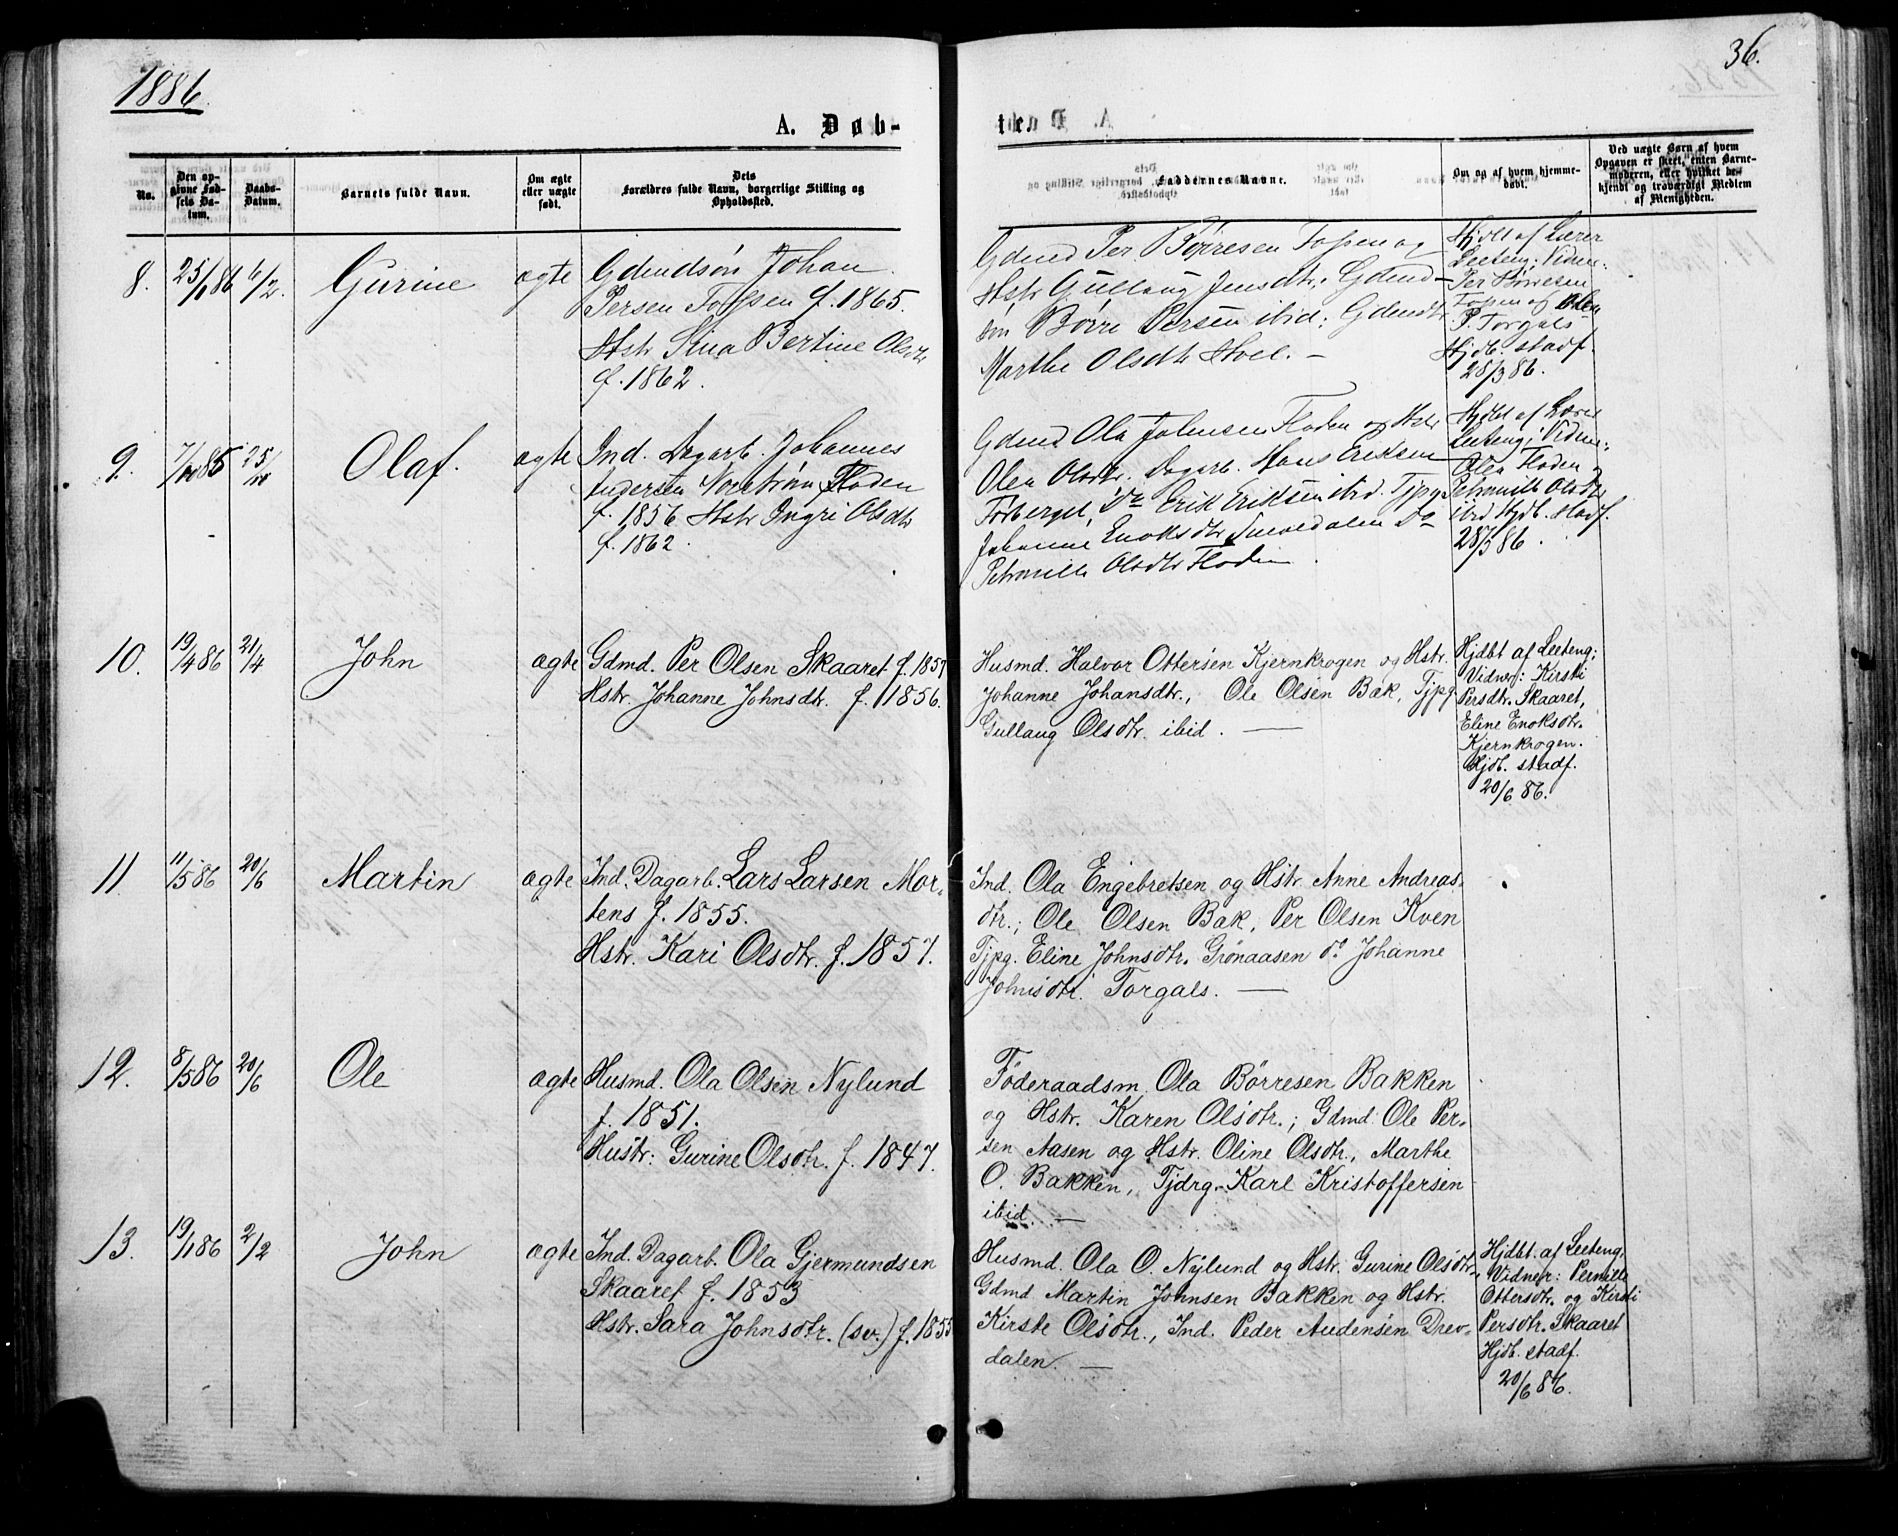 1886.
36.
A. Døb-
ten
No.
Den op-
givne Fød-
sels Da-
tum.
Daabs-
Datum.
Barnets fulde Navn.
Om ægte
eller uægte
født.
Dets
Forældres fulde Navn, borgerlige Stilling og
Opholdssted.
Faddernes Navne.
Om og af hvem hjemme-
døbt.
Ved uægte Børn af hvem
Opgaven er skeet, enten Barne-
moderen, eller hvilket be-
kjendt og troværdigt Medlem
af Menigheden.
8. 25/1 86 6/2. Gurine ægte
Gdmdsön Johan
Persen Tossen f. 1865.
Hstr Sina Bertine Olsdtr
f. 1862.
Gdmd Per Börresen Tossen og
Hstr Gullaug Jensdtr. Gdmd-
sön Börre Persen ibid; Gdmdtr
Marthe Olsdtr Hoel. —
Hjdbt af Lærer
Leeteng; Vidner:
Per Börresen
Tossen og
P. Torgals
Hjdb. stadf.
28/3 86.
9. 25/ Olaf. ægte
Ind. Dagarb. Johannes
Andersen Floden
f. 1856 Hstr Ingri Olsdtr
f. 1862.
Gdmd Ola Johnsen Floden og Hstr
Olea Olsdtr. Dagarb. Hans Eriksen
Erik Eriksen ibid. Tjpg.
Johanne Enoksdtr Do
Petronille Olsdtr Floden.
Hjdbt af Lærer
Leeteng; Vidner:
Olea Floden og
Petronille Olsdtr
ibid Hjdb. stadf.
28/3 86.
10. 19/4 86 21/4 John ægte
Gdmd. Per Olsen Skaaret f. 1857
Hstr. Johanne Johnsdtr. f. 1856.
Husmd. Halvor Ottersen Kjernkrogen og Hstr.
Johanne Johansdtr., Ole Olsen Bak, Tjpg
Gullaug Olsdtr. ibid. —
Hjdbt af Leeteng;
Vidner: Kirsti
Persdtr. Skaaret,
Eline Enoksdtr.
Kjernkrogen.
Hjdb. stadf.
20/6 86.
11 11/5 86 20/6 Martin ægte
Ind. Dagarb. Lars Larsen Mor-
tens f. 1855.
Hstr. Kari Olsdtr. f. 1857.
Ind. Ola Engebretsen og Hstr. Anne Andreas-
dtr.; Ole Olsen Bak, Per Olsen Kven
Tjpg. Eline Johnsdtr. Grönaasen do Johanne
Johnsdtr. Torgals. —
12. 8/5 86 20/6 Ole ægte
Husmd. Ola Olsen Nylund
f. 1851.
Hustr: Gurine Olsdtr. f. 1847.
Föderaadsm. Ola Börresen Bakken
og Hstr. Karen Olsdtr.; Gdmd. Ole Per-
sen Aasen og Hstr. Oline Olsdtr., Marthe
O. Bakken, Tjdrg. Karl Kristoffersen
ibid. —
13. 19/1 86 2/2 John ægte
Ind. Dagarb. Ola Gjermundsen
Skaaret f. 1853
Hstr. Sara Johnsdtr. (sv.) f. 1855
Husmd. Ola O. Nylund og Hstr. Gurine Olsdtr.,
Gdmd Martin Johnsen Bakken og Hstr.
Kirste Olsdtr., Ind. Peder Audensen Drev-
dalen. —
Hjdbt. af Leeteng,
Vidner: Pernille
Ottersdtr. og Kirsti
Persdtr. Skaaret
Hjdb. stadf.
20/6 86.